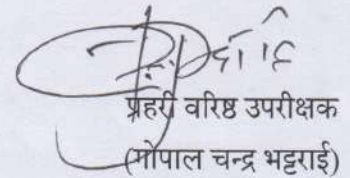 प्रहरी वरिष्ठ उपरीक्षक
(गोपाल चन्द्र भट्टराई)